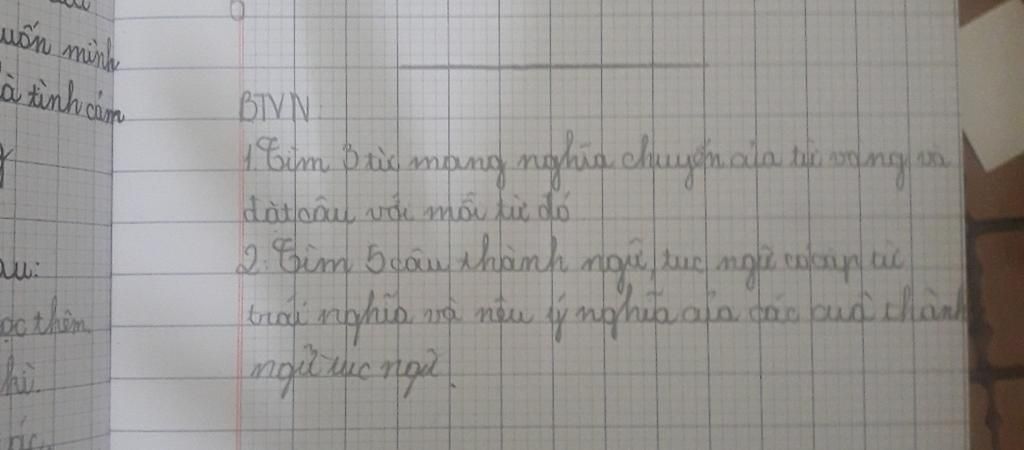 uốn mình
à tình cảm
BTVN
1. Tìm 3 từ mang nghĩa chuyển của từ vàng và
đặt câu với mỗi từ đó
2. Tìm 5 câu thành ngữ, tục ngữ có cặp từ
trái nghĩa và nêu ý nghĩa của các câu thành
ngữ tục ngữ.
au:
ọc thêm
hì.